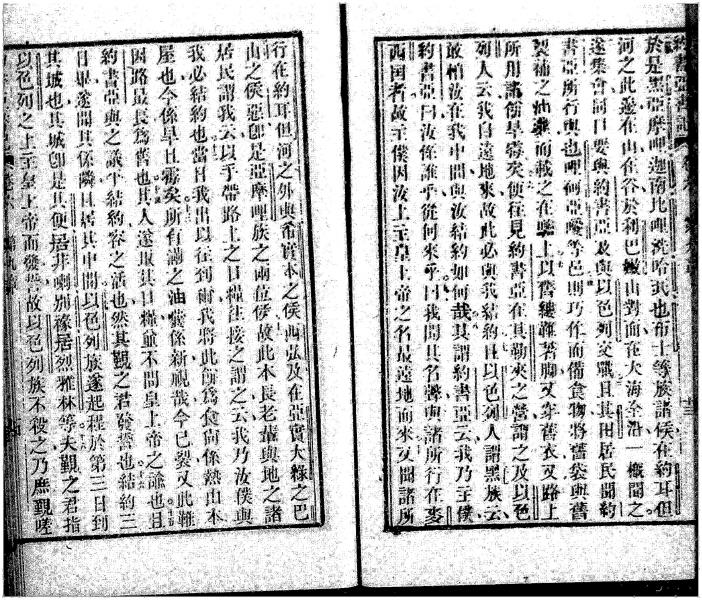 於是黑亞摩呷迦南比哩洗哈武也布士等族諸侯在約耳但
河之此邊在山在谷於利巴嫩山對面在大海全沿一概聞之
遂集會同口要與約書亞及與以色列交戰且其田居民聞約
書亞所行與也哩何亞噯等邑則巧作而備食物將舊袋與舊
裂補之油囊而載之在驢上以舊縷鞋著腳又穿舊衣又路上
所用諸餅旱霉矣便往見約書亞在其勒夾之營謂之及以色
列人云我自遠地來故此必與我結約且以色列人謂黑族云
敢怕汝在我中間與汝結約如何哉其謂約書亞云我乃主僕
約書亞曰汝係誰乎從何來乎曰我聞其名聲與諸所行在麥
西国者故主僕因汝上主皇上帝之名最遠地而來又聞諸所
行在約耳但河之外與希實本之侯西弘及在亞實大綠之巴
山之侯惡即是亞摩哩族之兩位侯故此本長老輩與地之諸
居民謂我云以手帶路上之日糧往接之謂之云我乃汝僕與
我必結約也當日我出以往到爾我將此餅為食尚係熱由本
屋也今係旱且霉矣所有滿之油囊係新視哉今已裂又此鞋
因路最長為舊也其人遂取其日糧並不問皇上帝之諭也且
約書亞與之議平結約容之活也然其覲之君發誓也結約三
日畢遂聞其係隣且居其中間以色列族遂起程於第三日到
其城也其城即是其便㨿井喇別稼㨿烈雅林等夫覲之君指
以色列之上主皇上帝而發誓故以色列族不殺之乃庶覲嗟